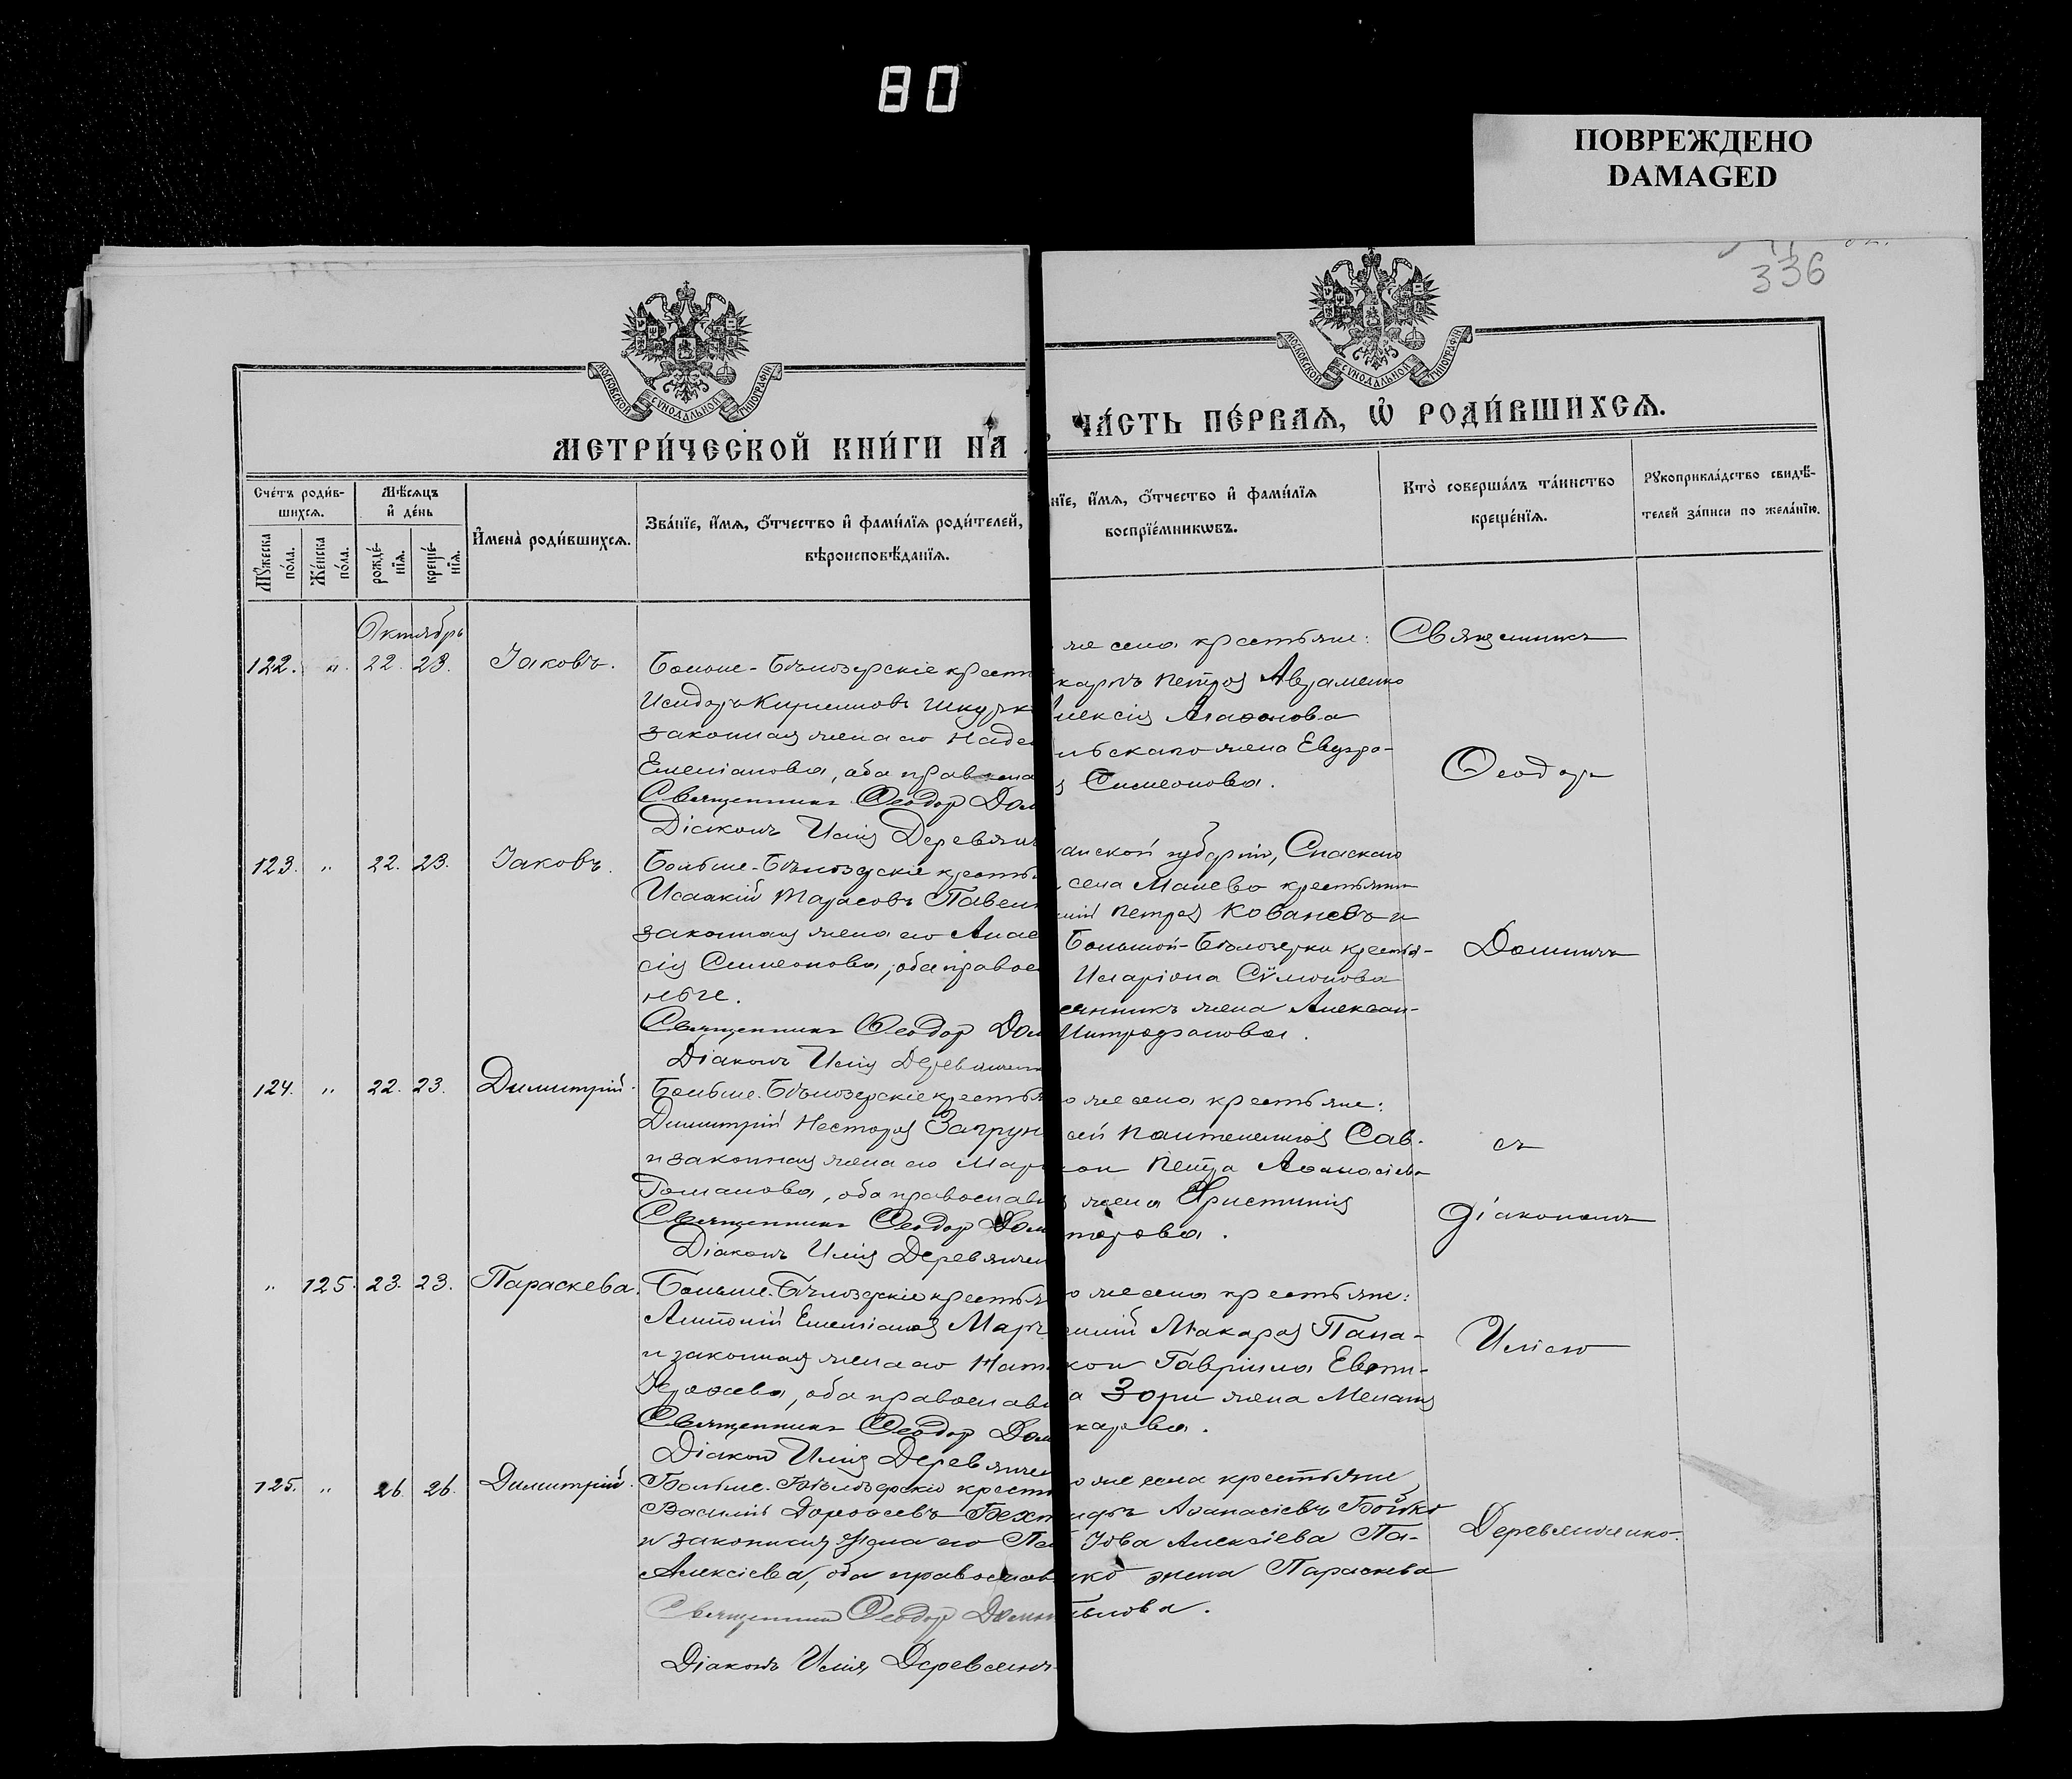 80
ПОВРЕЖДЕНО
DAMAGED
336
МОСКОВСКОЙ СѴНОДАЛЬНОЙ ТИПОГРАФІИ
МОСКОВСКОЙ СѴНОДАЛЬНОЙ ТИПОГРАФІИ
МЕТРИ́ЧЕСКОЙ КНИ́ГИ НА
ЧА́СТЬ ПЕ́РВАѦ, Ѽ РОДИ́ВШИХСѦ.
Сче́тъ роди́в-
шихсѧ.
Мꙋ́жеска по́ла.
Же́нска по́ла.
Мѣ́сѧцъ
и҆ де́нь
рожде́-
нїѧ.
креще́-
нїѧ.
И҆мена̀ роди́вшихсѧ.
Зва́нїе, и҆́мѧ, ѻ҆́тчество и҆ фамѝлїѧ роди́телей,
вѣроисповѣ́данїѧ.
нїе, и҆́мѧ, ѻ҆́тчество и҆ фами́лїѧ
воспрїе́мникѡвъ.
Кто̀ соверша́лъ та́инство
креще́нїѧ.
Рꙋкоприкла́дство свидѣ́-
телей за́писи по жела́нїю.
Октябрь
122. „ 22. 23. Іаковъ.
Больше-Бѣлозерскіе крест
Исидоръ Кирилловъ Шкурк
законная жена его Наде
Емеліанова, оба
Священникъ Ѳеодор Дом
Діаконъ Илія Деревянч
же села крестьяне:
карпъ Петров Авраменко
лексія Агаѳонова
льскаго жена Евдро-
Симеонова.
123. „ 22. 23. Іаковъ.
Больше-Бѣлозерскіе кресть
Исаакій Тарасовъ Павел
законная жена его Анас
сія Симеонова, оба правос
ные.
Священникъ Ѳеодор Дом
Діаконъ Илія Деревянчен
анской губерніи, Спаскаго
села Малево крестьянин
Петров Кованевъ и
Большой-Бѣлозерки крестья-
Иларіона Сѵмонова
жена Алексан-
Митрофановая.
124. „ 22. 23. Димитрій.
Больше-Бѣлозерскіе крестья
Димитрій Несторов Загрун
и законная жена его Мар
Романова, оба православ
Священникъ Ѳеодор Дом
Діаконъ Илія Деревянчен
о же села крестьяне:
сей Пантелеимов Сав-
кои Петра Аѳанасіева
жена Христинія
торова.
„ 125. 23. 23. Параскева.
Больше-Бѣлозерскіе крестья
Антоній Емеліанов Март
и законная жена его Нат
оба православ
Священникъ Ѳеодор Дом
Діакон Илія Деревянчен
о же села крестьяне:
Макаров Пана-
кои Гавріила Евти-
а Зори жена Меланія
карова.
125. „ 26. 26. Димитрій.
Больше-Бѣлозерскіе крест
Василій Дороѳеевъ Бехт
и законная жена его
Алексіева, оба православ
Священник Ѳеодор Домн
Діаконъ Илія Деревянч
о же села крестьяне
Аѳанасіевъ Бойко
Іова Алексіева Па-
нко жена Параскева
Священникъ
Ѳеодоръ
Домнинъ
съ
діакономъ
Иліею
Деревянченко.